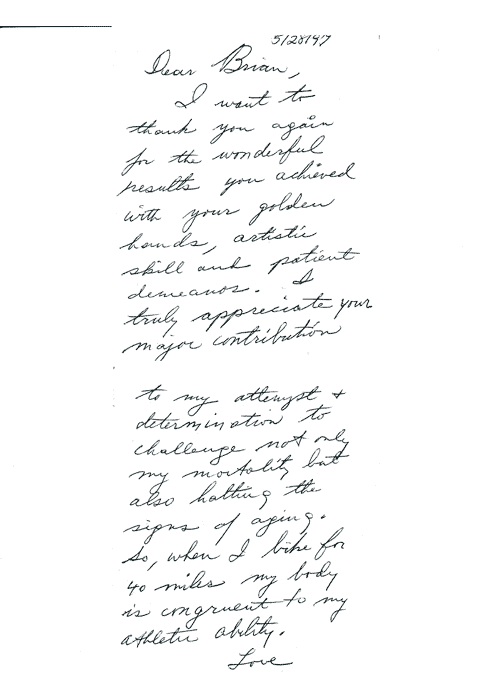 5/28/97
Dear Brian,
I want to
thank you again
for the wonderful
results you achieved
with your golden
hands, artistic
skill and patient
demeanor. I
truly appreciate your
major contribution
to my attempt +
determination to
challenge not only
my mortality but
also halting the
signs of aging.
So, when I bike for
40 miles my body
is congruent to my
athletic ability.
Love